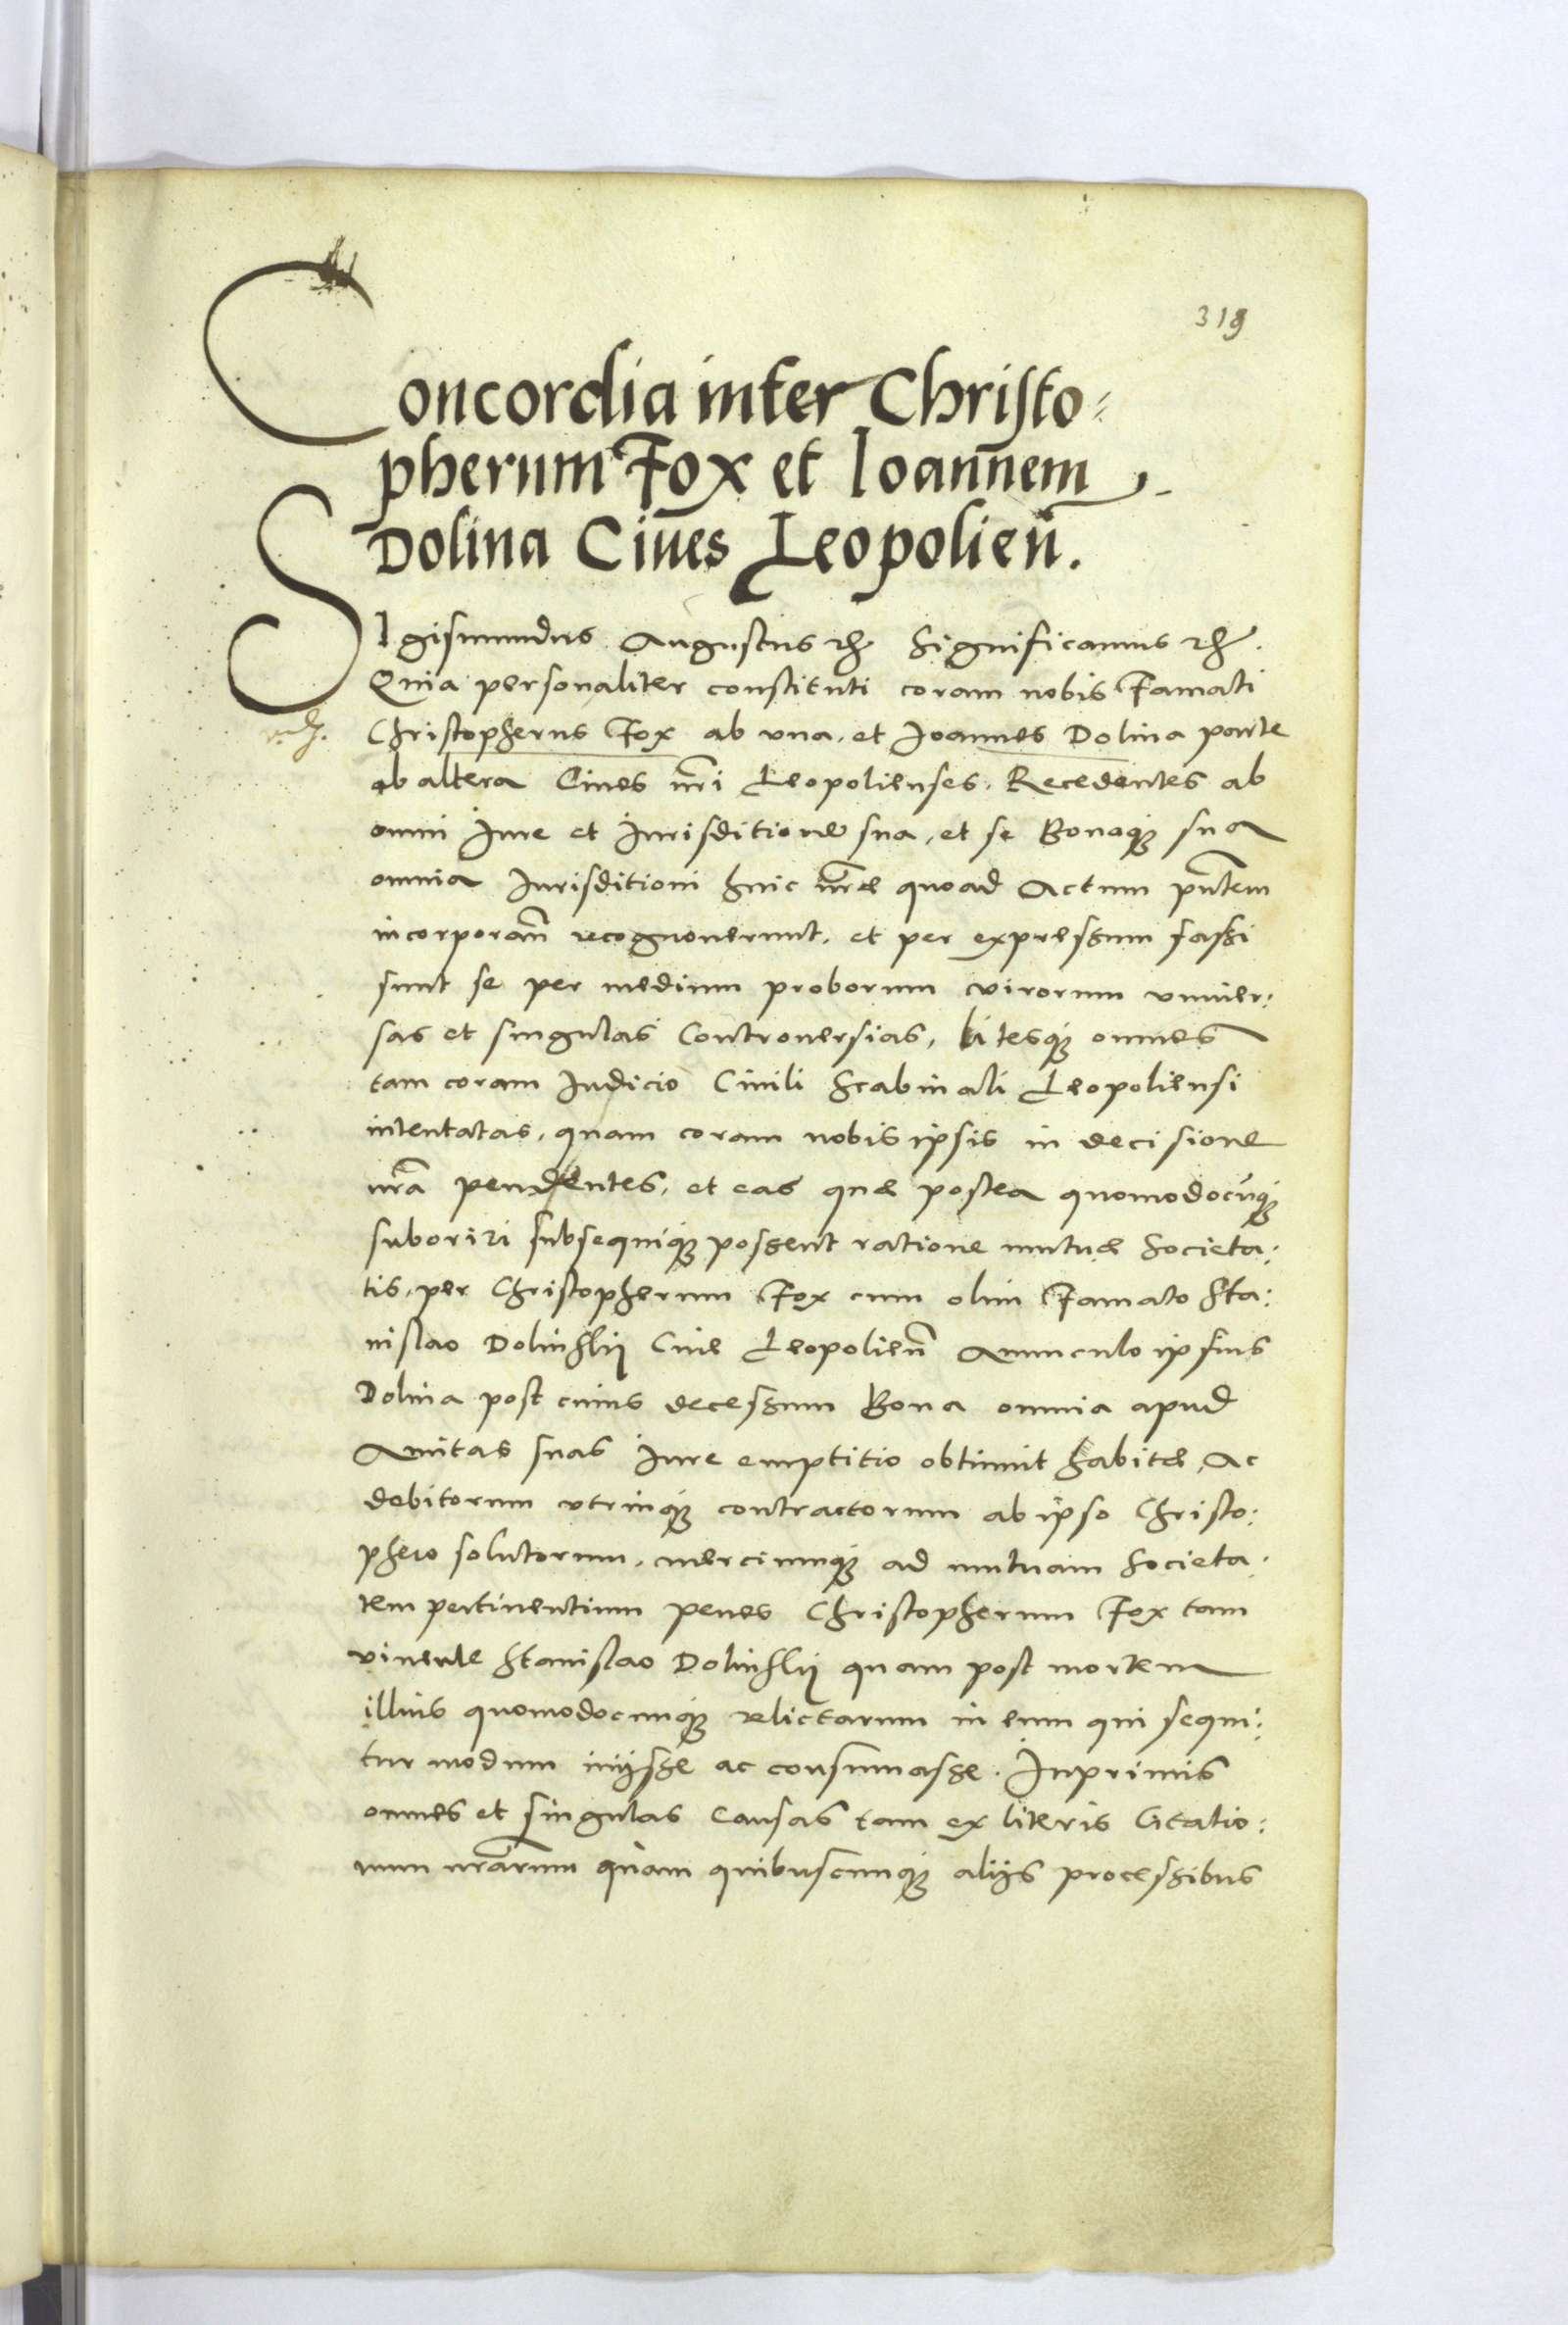 319
Concordia inter Christo=
pherum Fox et Ioannem
Dolina Ciues Leopolien̄.
SIgismundus Augustus etc Significamus etc.
Quia personaliter constituti coram nobis Famati
Christopherus Fox ab vna, et Joannes Dolina parte
ab altera Ciues nr̄i Leopolienses. Recedentes ab
omni Jure et Jurisditione sua, et se Bonaq́ȝ sua
omnia Jurisditioni huic nr̄æ quoad Actum pn̄tem
incorporan̄ recognouerunt, et per expressum fassi
sunt se per medium proborum virorum vniuer:
sas et singulas Controuersias, Litesq́ȝ omnes
tam coram Judicio Ciuili Scabinali Leopoliensi
intentatas, quam coram nobis ipsis in decisione
nr̄a pendentes, et eas quæ postea quomodocūq́ȝ
suboriri subsequiq́ȝ possent ratione mutuæ Societa:
tis, per Christopherum Fox cum olim Famato Sta:
nislao Dolinskij Ciue Leopolien̄ Auunculo ipsius
Dolina post cuius decessum Bona omnia apud
Amitas suas Jure emptitio obtinuit habitæ, Ac
debitorum vtrinq́ȝ contractorum ab ipso Christo:
phero solutorum, merciumq́ȝ ad mutuam Societa:
tem pertinentium penes Christopherum Fox tam
viuente Stanislao Dolinskij quam post mortem
illius quomodocunq́ȝ relictarum in eum qui sequi:
tur modum inijsse ac consumasse. Inprimis
omnes et singulas Causas tam ex literis Citatio:
num nr̄arum quàm quibuscunq́ȝ alijs processibus